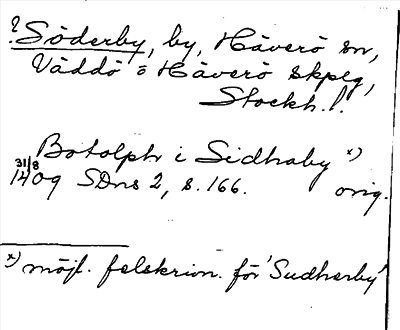 ? Söderby, by, Häverö sn,
Väddö o Häverö skplg,
Stockh. l.
Botolph i Sidhaby x)
31/8 1409 SDns 2, s. 166. orig.
x) möjl. felskrivn. för 'Sudherby'